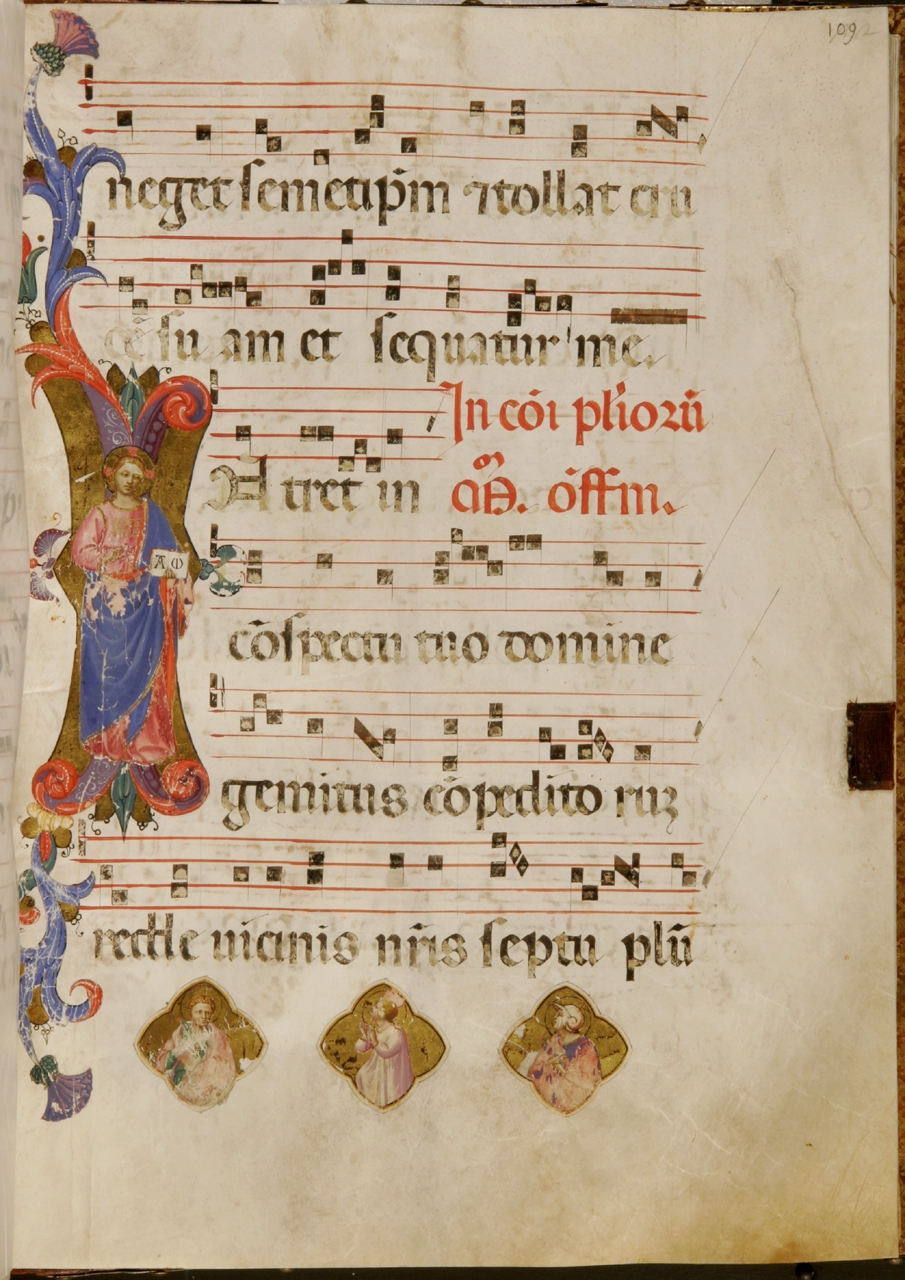 109
neget semetip̄m ⁊ tollat cru
cē su am et sequatur me.
In cōi pl'ioꝝ
A tret in m̄r̄. offm̄.
A Ω
cōspectu tuo domine
gemitus cōpedito ruꝫ
redde uicinis nr̄is septu plū